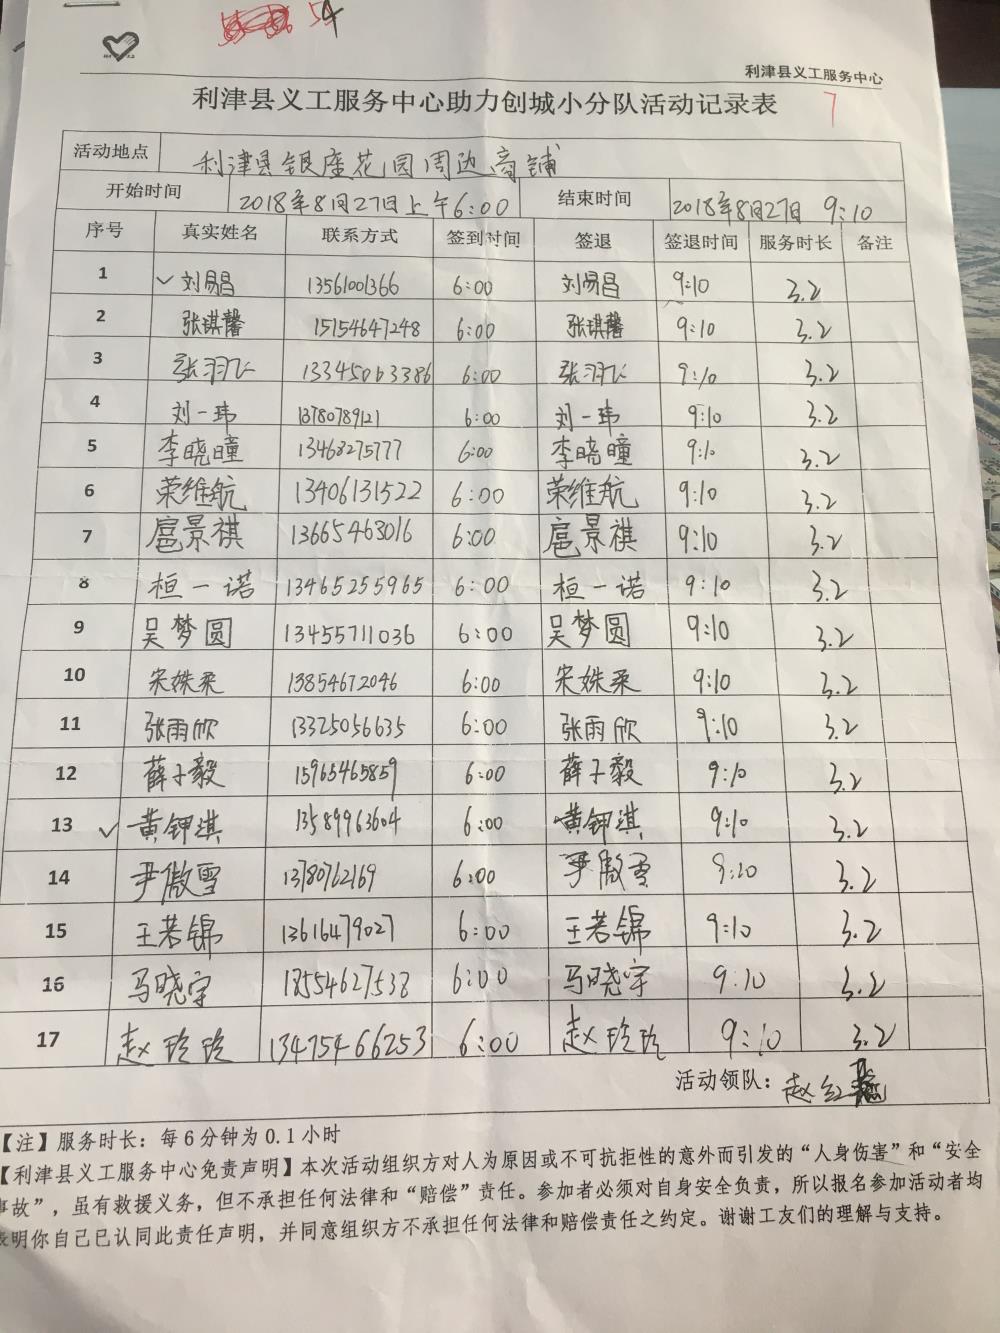 54
利津县义工服务中心
利津县义工服务中心助力创城小分队活动记录表
7
活动地点 利津县银座花园周边商铺
开始时间 2018年8月27日上午6:00 结束时间 2018年8月27日 9:10
序号 真实姓名 联系方式 签到时间 签退 签退时间 服务时长 备注
1 ✓刘易昌 13561001366 6:00 刘易昌 9:10 3.2
2 张琪馨 15154647248 6:00 张琪馨 9:10 3.2
3 张羽飞 13345063386 6:00 张羽飞 9:10 3.2
4 刘一玮 13780789121 6:00 刘一玮 9:10 3.2
5 李晓曈 13468275777 6:00 李晓曈 9:10 3.2
6 荣维航 13406131522 6:00 荣维航 9:10 3.2
7 扈景祺 13665463016 6:00 扈景祺 9:10 3.2
8 桓一诺 13465255965 6:00 桓一诺 9:10 3.2
9 吴梦圆 13455711036 6:00 吴梦圆 9:10 3.2
10 宋姝柔 13854672046 6:00 宋姝柔 9:10 3.2
11 张雨欣 13325056635 6:00 张雨欣 9:10 3.2
12 薛子毅 15965465859 6:00 薛子毅 9:10 3.2
13 ✓黄钾淇 13589963604 6:00 黄钾淇 9:10 3.2
14 尹傲雪 13780762169 6:00 尹傲雪 9:10 3.2
15 王若锦 13616479027 6:00 王若锦 9:10 3.2
16 马晓宇 18554627538 6:00 马晓宇 9:10 3.2
17 赵玲玲 13475466253 6:00 赵玲玲 9:10 3.2
活动领队：赵红
【注】服务时长：每6分钟为0.1小时
【利津县义工服务中心免责声明】本次活动组织方对人为原因或不可抗拒性的意外而引发的“人身伤害”和“安全
事故”，虽有救援义务，但不承担任何法律和“赔偿”责任。参加者必须对自身安全负责，所以报名参加活动者均
表明你自己已认同此责任声明，并同意组织方不承担任何法律和赔偿责任之约定。谢谢工友们的理解与支持。